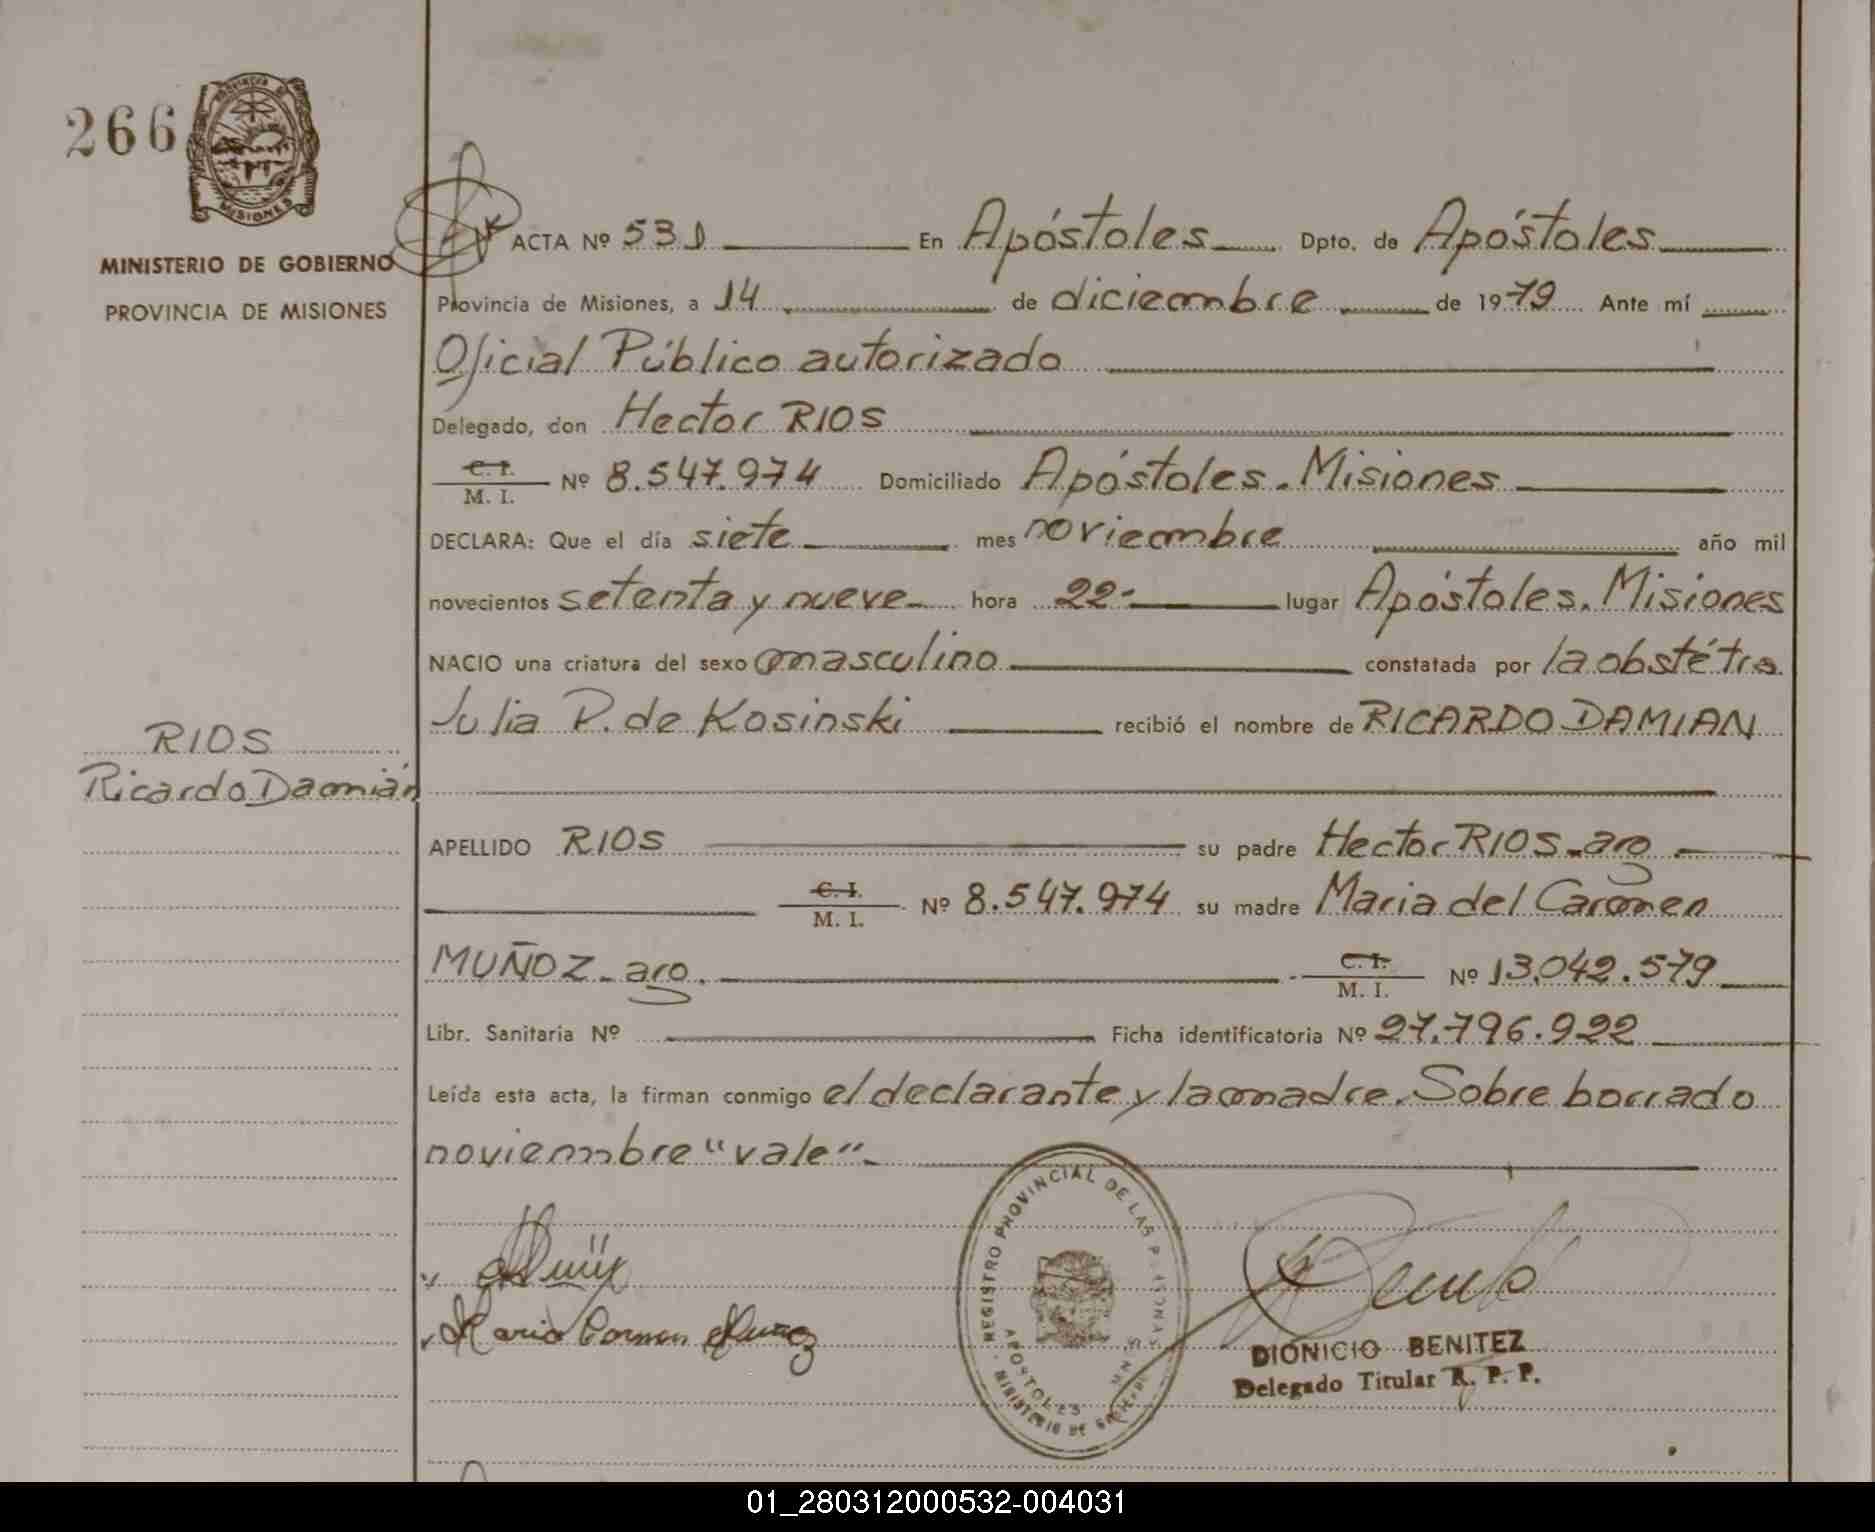 266
PROVINCIA DE
MISIONES
MINISTERIO DE GOBIERNO
PROVINCIA DE MISIONES
ACTA Nº 531 En Apóstoles Dpto. de Apóstoles
Provincia de Misiones, a 14 de diciembre de 1979 Ante mí
Oficial Público autorizado
Delegado, don Hector RIOS
C. I.
M. I. Nº 8.547.974 Domiciliado Apóstoles. Misiones
DECLARA: Que el día siete mes noviembre año mil
novecientos setenta y nueve hora 22- lugar Apóstoles. Misiones
NACIO una criatura del sexo masculino constatada por la obstétra
Julia P. de Kosinski recibió el nombre de RICARDO DAMIAN
RIOS
Ricardo Damián
APELLIDO RIOS su padre Hector RIOS-arg
C. I.
M. I. Nº 8.547.974 su madre Maria del Carmen
MUÑOZ-arg. C. I.
M. I. Nº 13.042.579
Libr. Sanitaria Nº Ficha identificatoria Nº 27.796.922
Leída esta acta, la firman conmigo el declarante y la madre. Sobre borrado
noviembre "vale".-
Maria Carmen Muñoz
REGISTRO PROVINCIAL DE LAS PERSONAS
APOSTOLES MNES
MINISTERIO DE GOBIERNO
DIONICIO BENITEZ
Delegado Titular R. P. P.
01_280312000532-004031